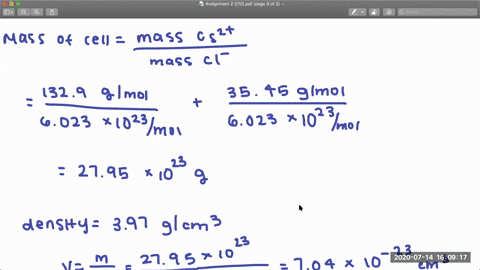 Assignment 2.1[16].pdf (page 3 of 3)
Mass of cell = mass Cs²⁺
mass Cl⁻
= 132.9 g/mol + 35.45 g/mol
6.023 × 10²³/mol 6.023 × 10²³/mol
= 27.95 × 10²³ g
density = 3.97 g/cm³
V = m = 27.95 × 10²³ = 7.04 × 10⁻²³ cm³
2020-07-14 16:09:17